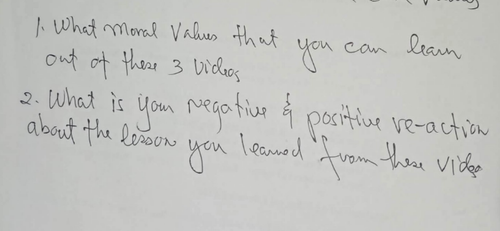 1. What moral values that you can learn
out of these 3 videos
2. What is your negative & positive re-action
about the lesson you learned from these video